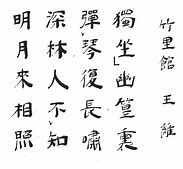 竹里館　王維
獨坐幽篁裏
彈琴復長嘯
深林人不知
明月來相照